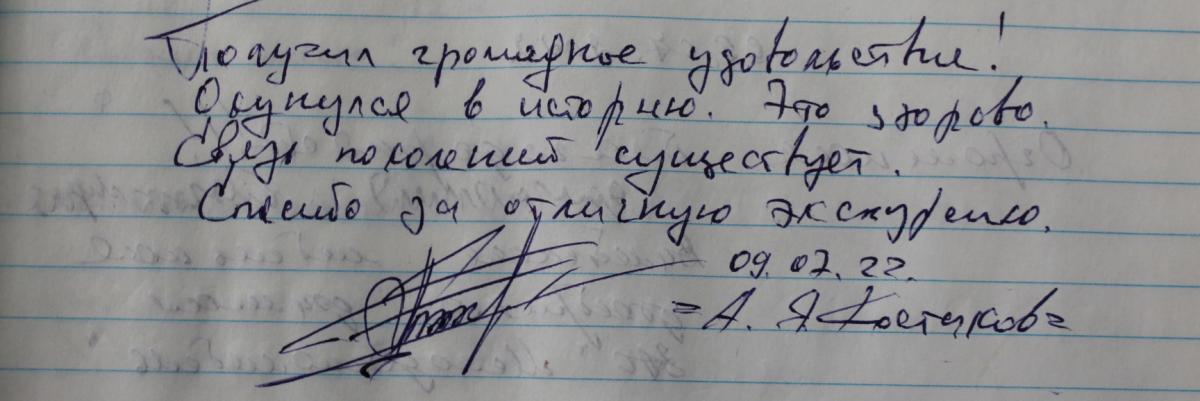 Получил громадное удовольствие!
Окунулся в историю. Это здорово.
Связь поколений существует.
Спасибо за отличную экскурсию.
09.07.22.
= А. Я Костиков =